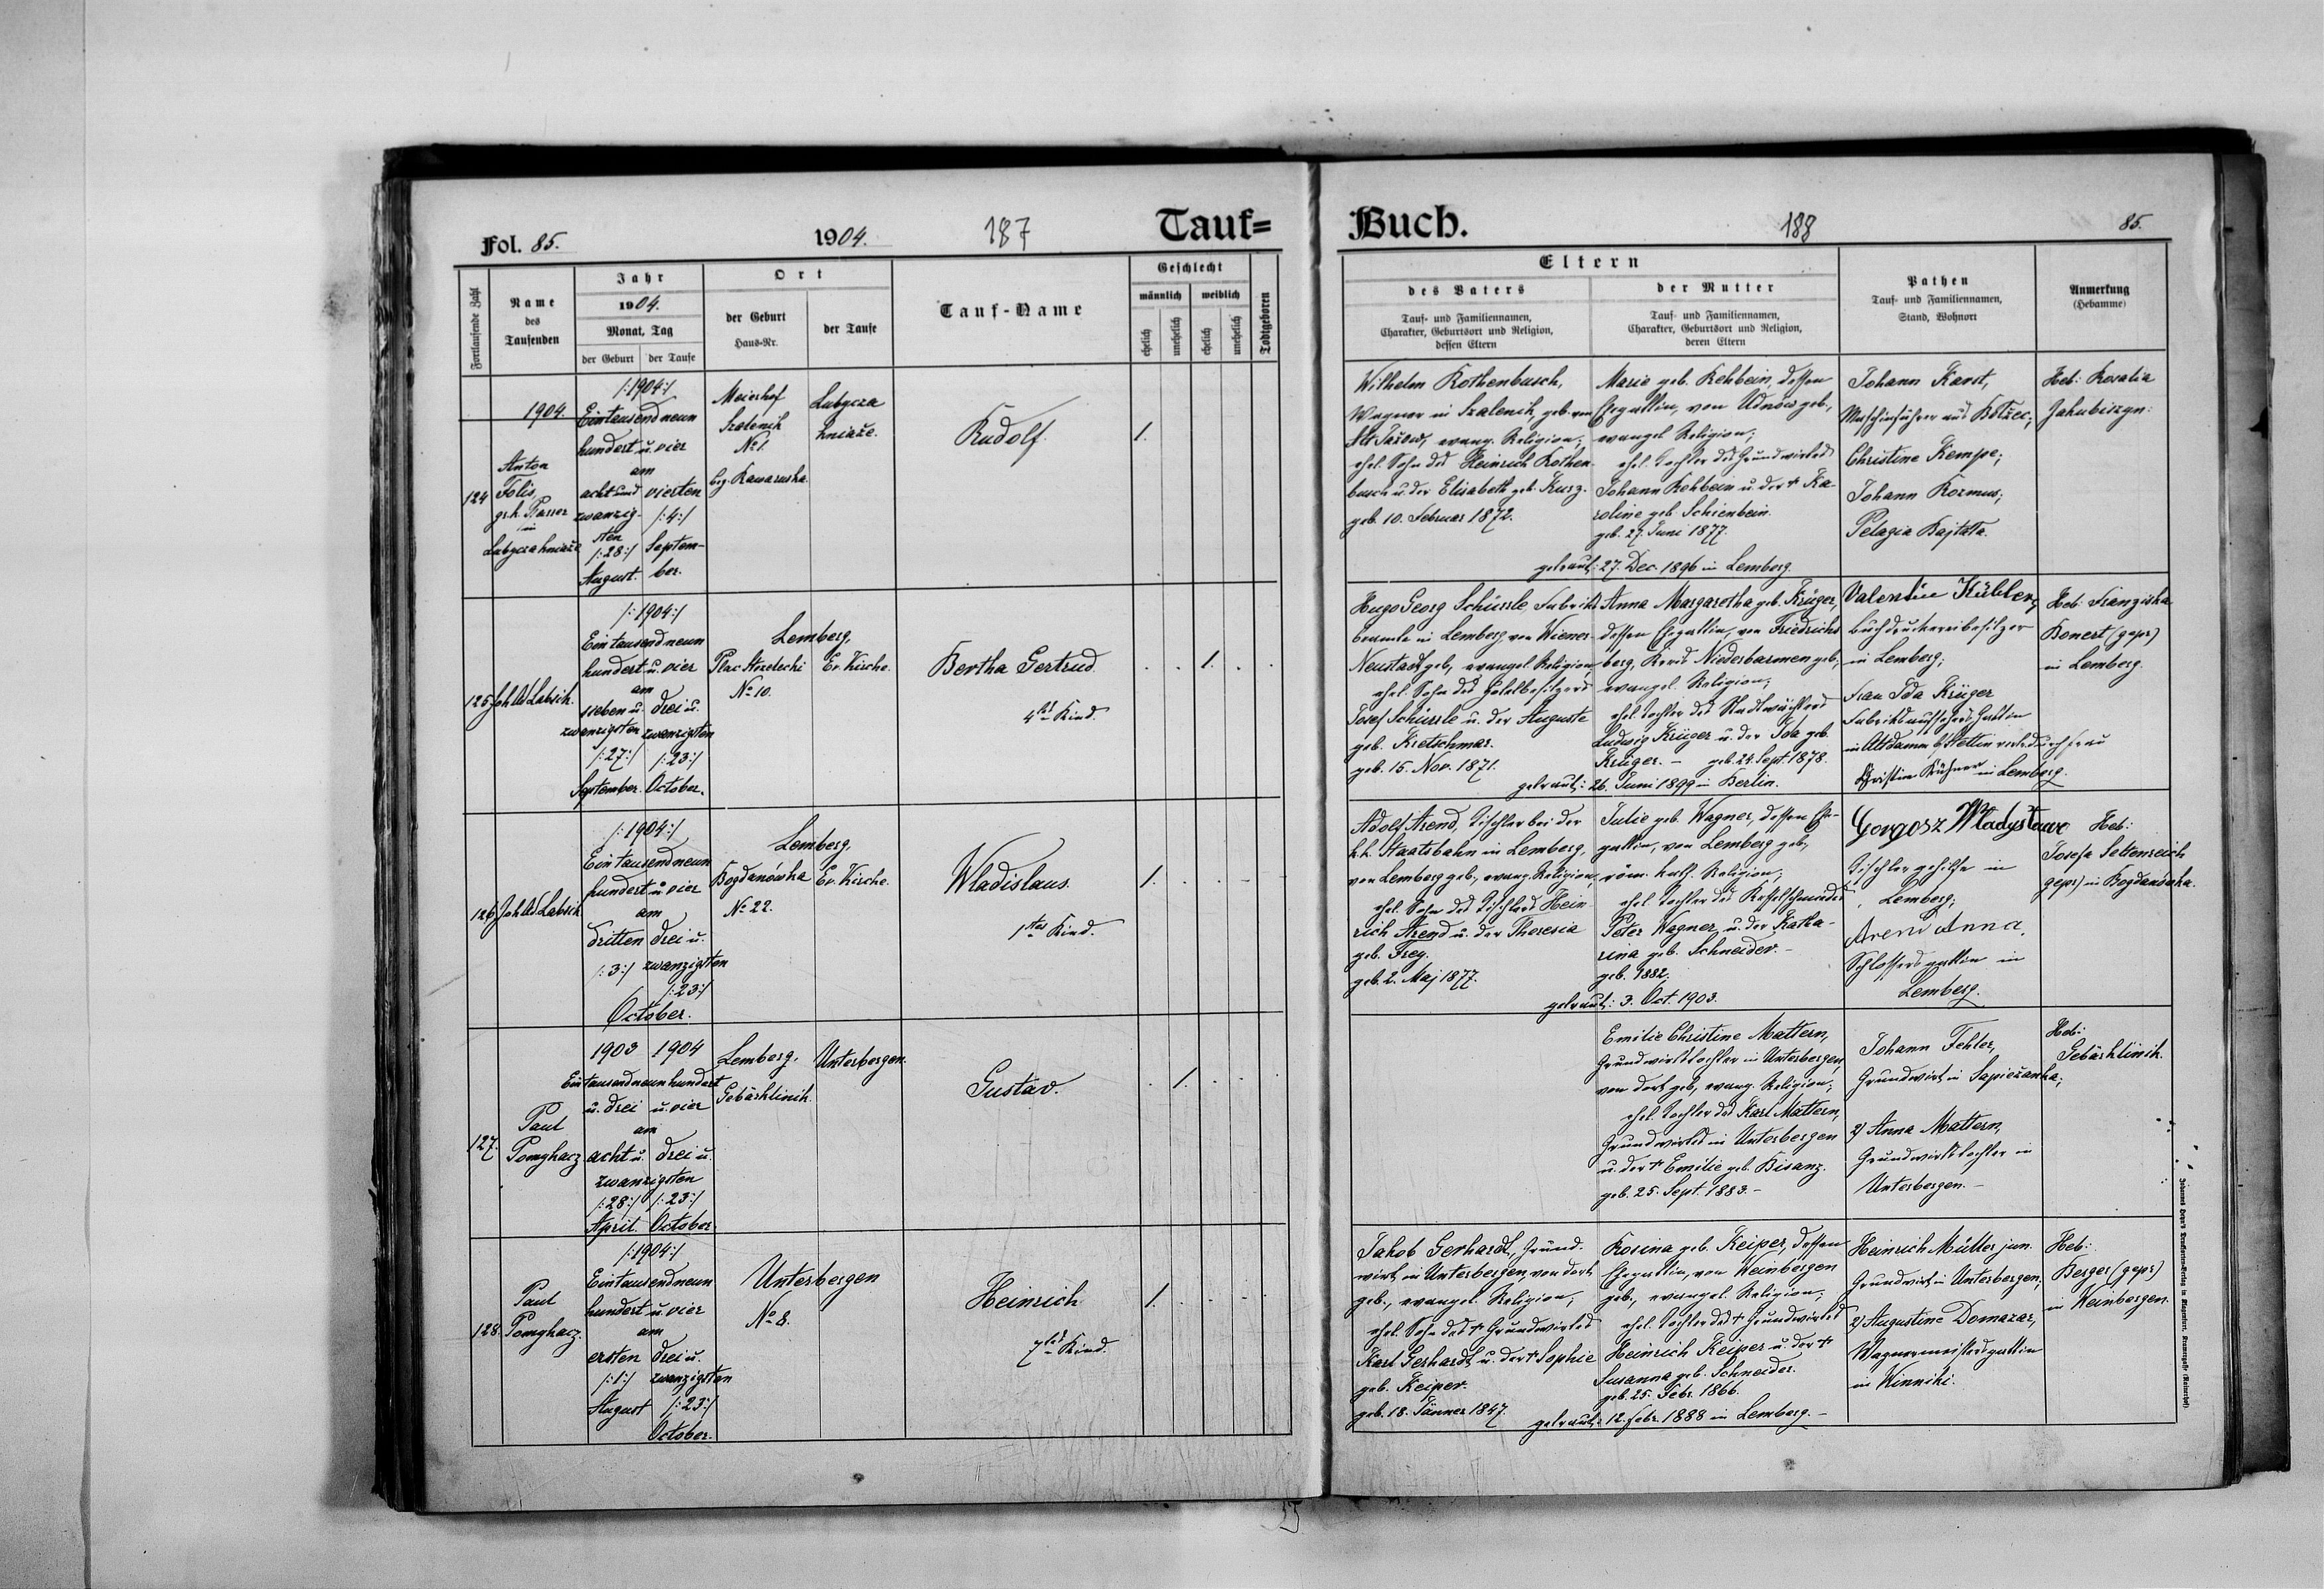 Fol. 85.
1904.
187
Tauf=
Fortlaufende Zahl
Name
des
Taufenden
Jahr
1904.
Monat, Tag
der Geburt
der Taufe
Ort
der Geburt
Haus-Nr.
der Taufe
Tauf-Name
Geschlecht
männlich
weiblich
ehelich
unehelich
ehelich
unehelich
Todtgeboren
124
1904.
Anton
Folis,
gr. k. Pfarrer
in
Lubycza kniaże
/:1904:/
Eintausendneun
hundert u. vier
am
acht und
zwanzig-
sten
/:28:/
August.
vierten
/:4:/
Septem-
ber.
Meierhof
Szalenik
No 1.
bez. Rawaruska
Lubycza
kniaże.
Rudolf.
1.
125
Joh Ad Labsik.
/:1904:/
Eintausendneun
hundert u. vier
am
sieben u.
zwanzigsten
/:27:/
September.
drei u.
zwanzigsten
/:23:/
October.
Lemberg,
Plac Strzelecki
No 10.
Ev. Kirche.
Bertha Gertrud.
4tes Kind.
1.
126
Joh Ad Labsik
/:1904:/
Eintausendneun
hundert u. vier
am
dritten
/:3:/
drei u.
zwanzigsten
/:23:/
October.
Lemberg,
Bogdanówka
No 22.
Ev. Kirche.
Wladislaus.
1tes Kind.
1.
127.
Paul
Pomykacz
1903
1904
Eintausendneunhundert
u. drei
u. vier
am
acht u.
drei u.
zwanzigsten
/:28:/
/:23:/
April.
October.
Lemberg,
Gebärklinik.
Unterbergen.
Gustav.
1.
128.
Paul
Pomykacz.
/:1904:/
Eintausendneun
hundert u. vier
am
ersten
/:1:/
August
drei u.
zwanzigsten
/:23:/
October.
Unterbergen
No 8.
Heinrich
7tes Kind.
1.
Buch.
188
85.
Eltern
des Vaters
Tauf- und Familiennamen,
Charakter, Geburtsort und Religion,
dessen Eltern
der Mutter
Tauf- und Familiennamen,
Charakter, Geburtsort und Religion,
deren Eltern
Pathen
Tauf- und Familiennamen,
Stand, Wohnort
Anmerkung
(Hebamme)
Wilhelm Rothenbusch,
Wagner in Szalenik, geb. von
Alt Jażow, evang. Religion;
ehel. Sohn des Heinrich Rothen-
busch u. der Elisabeth geb. Kurz.
geb. 10. Februar 1872.
Marie geb. Rehbein, dessen
Ehegattin, von Uhnów geb.,
evangel. Religion;
ehel. Tochter des Grundwirtes
Johann Rehbein u. der + Ka-
roline geb. Schienbein.
geb. 27. Juni 1877.
getraut: 27. Dec. 1896 in Lemberg.
Johann Karst,
Maschinführer aus
Christine Kempe;
Johann Kozmus;
Pelagia
Heb: Rosalia
Jakubiszyn.
Hugo Georg Schüssle Fabriks
beamte in Lemberg von Wiener-
Neustadt geb., evangel. Religion,
ehel. Sohn des Hotelbesitzers
Josef Schüssle u. der Auguste
geb. Kretschmar.
geb. 15. Nov. 1871.
Anna Margaretha geb. Krüger,
dessen Ehegattin, von Friedrichs
berg, Kreis Niederbarmen geb.,
evangel. Religion;
ehel. Tochter des Stadtwächters
Ludwig Krüger u. der Ida geb.
Krüger. – geb. 24. Sept. 1878.
getraut: 26. Juni 1899 in Berlin.
Valentin Kübler,
Buchdruckereibesitzer
in Lemberg;
Frau Ida Krüger
Fabriksaufsehers Gattin
in Altdamm b/Stettin vertr. durch Frau
Christine Kühner in Lemberg.
Heb: Franziska
Bonert (gepr)
in Lemberg.
Adolf Arend, Tischler bei der
k.k. Staatsbahn in Lemberg,
von Lemberg geb., evang. Religion,
ehel. Sohn des Tischlers Hein-
rich Arend u. der Theresia
geb. Frey.
geb. 2. Maj 1877.
Julie geb. Wagner, dessen Ehe-
gattin, von Lemberg geb,
röm. kath. Religion;
ehel. Tochter des Kesselschmiedes
Peter Wagner u. der Katha-
rina geb. Schneider. –
geb. 1882.
getraut: 3. Oct. 1903.
Gorgosz Władysław
Tischlergehilfe in
Lemberg;
Arend Anna,
Schlossersgattin in
Lemberg.
Heb:
Josefa Settenreich
gepr) in Bogdanówka.
Emilie Christine Mattern,
Grundwirtstochter in Unterbergen,
von dort geb, evang. Religion;
ehel. Tochter des Karl Mattern,
Grundwirtes in Unterbergen
u. der + Emilie geb. Bisanz.
geb. 25. Sept. 1883. –
Johann Fehler,
Grundwirt in Sapieżanka;
2) Anna Mattern,
Grundwirtstochter in
Unterbergen. –
Heb:
Gebärklinik.
Jakob Gerhardt, Grund-
wirt in Unterbergen, von dort
geb., evangel. Religion;
ehel. Sohn des + Grundwirtes
Karl Gerhardt u. der + Sophie
geb. Keiper.
geb. 18. Jänner 1847.
Rosina geb. Keiper, dessen
Ehegattin, von Weinbergen
geb., evangel. Religion;
ehel. Tochter des + Grundwirtes
Heinrich Keiper u. der +
Susanna geb. Schneider.
geb. 25. Febr. 1866.
getraut: 12. Febr. 1888 in Lemberg. –
Heinrich Müller jun.
Grundwirt in Unterbergen;
2) Augustine Domazar,
Wagnermeistersgattin
in Winniki.
Heb:
Berger (gepr)
in Weinbergen.